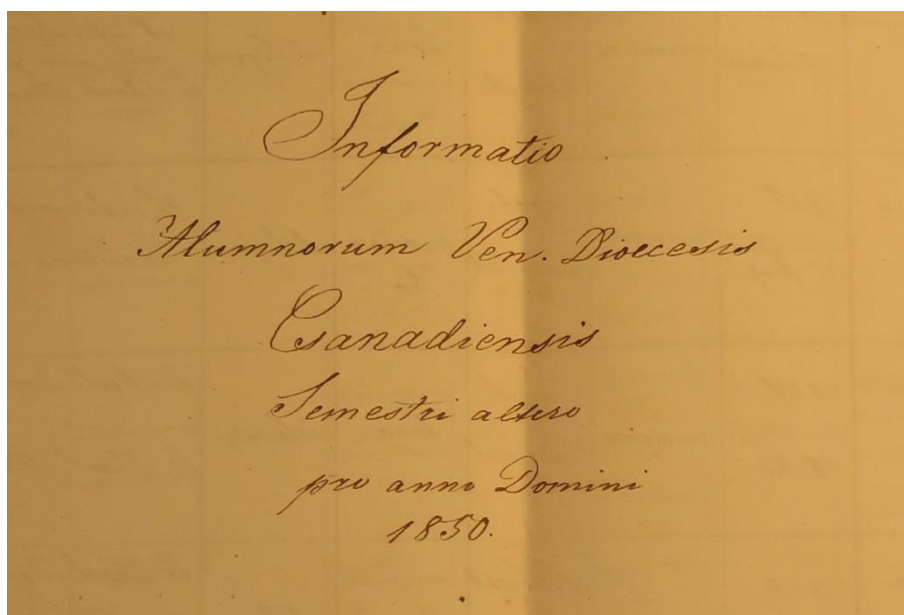 Informatio
Alumnorum Ven. Dioecesis
Csanadiensis
Semestri altero
pro anno Domini
1850.